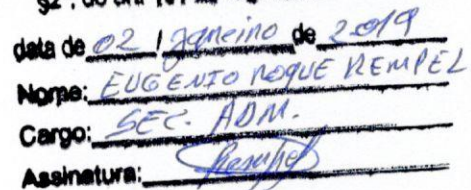 data de 02 / Janeiro de 2019
Nome: EUGENIO ROQUE REMPEL
Cargo: SEC. ADM.
Assinatura: Rempel